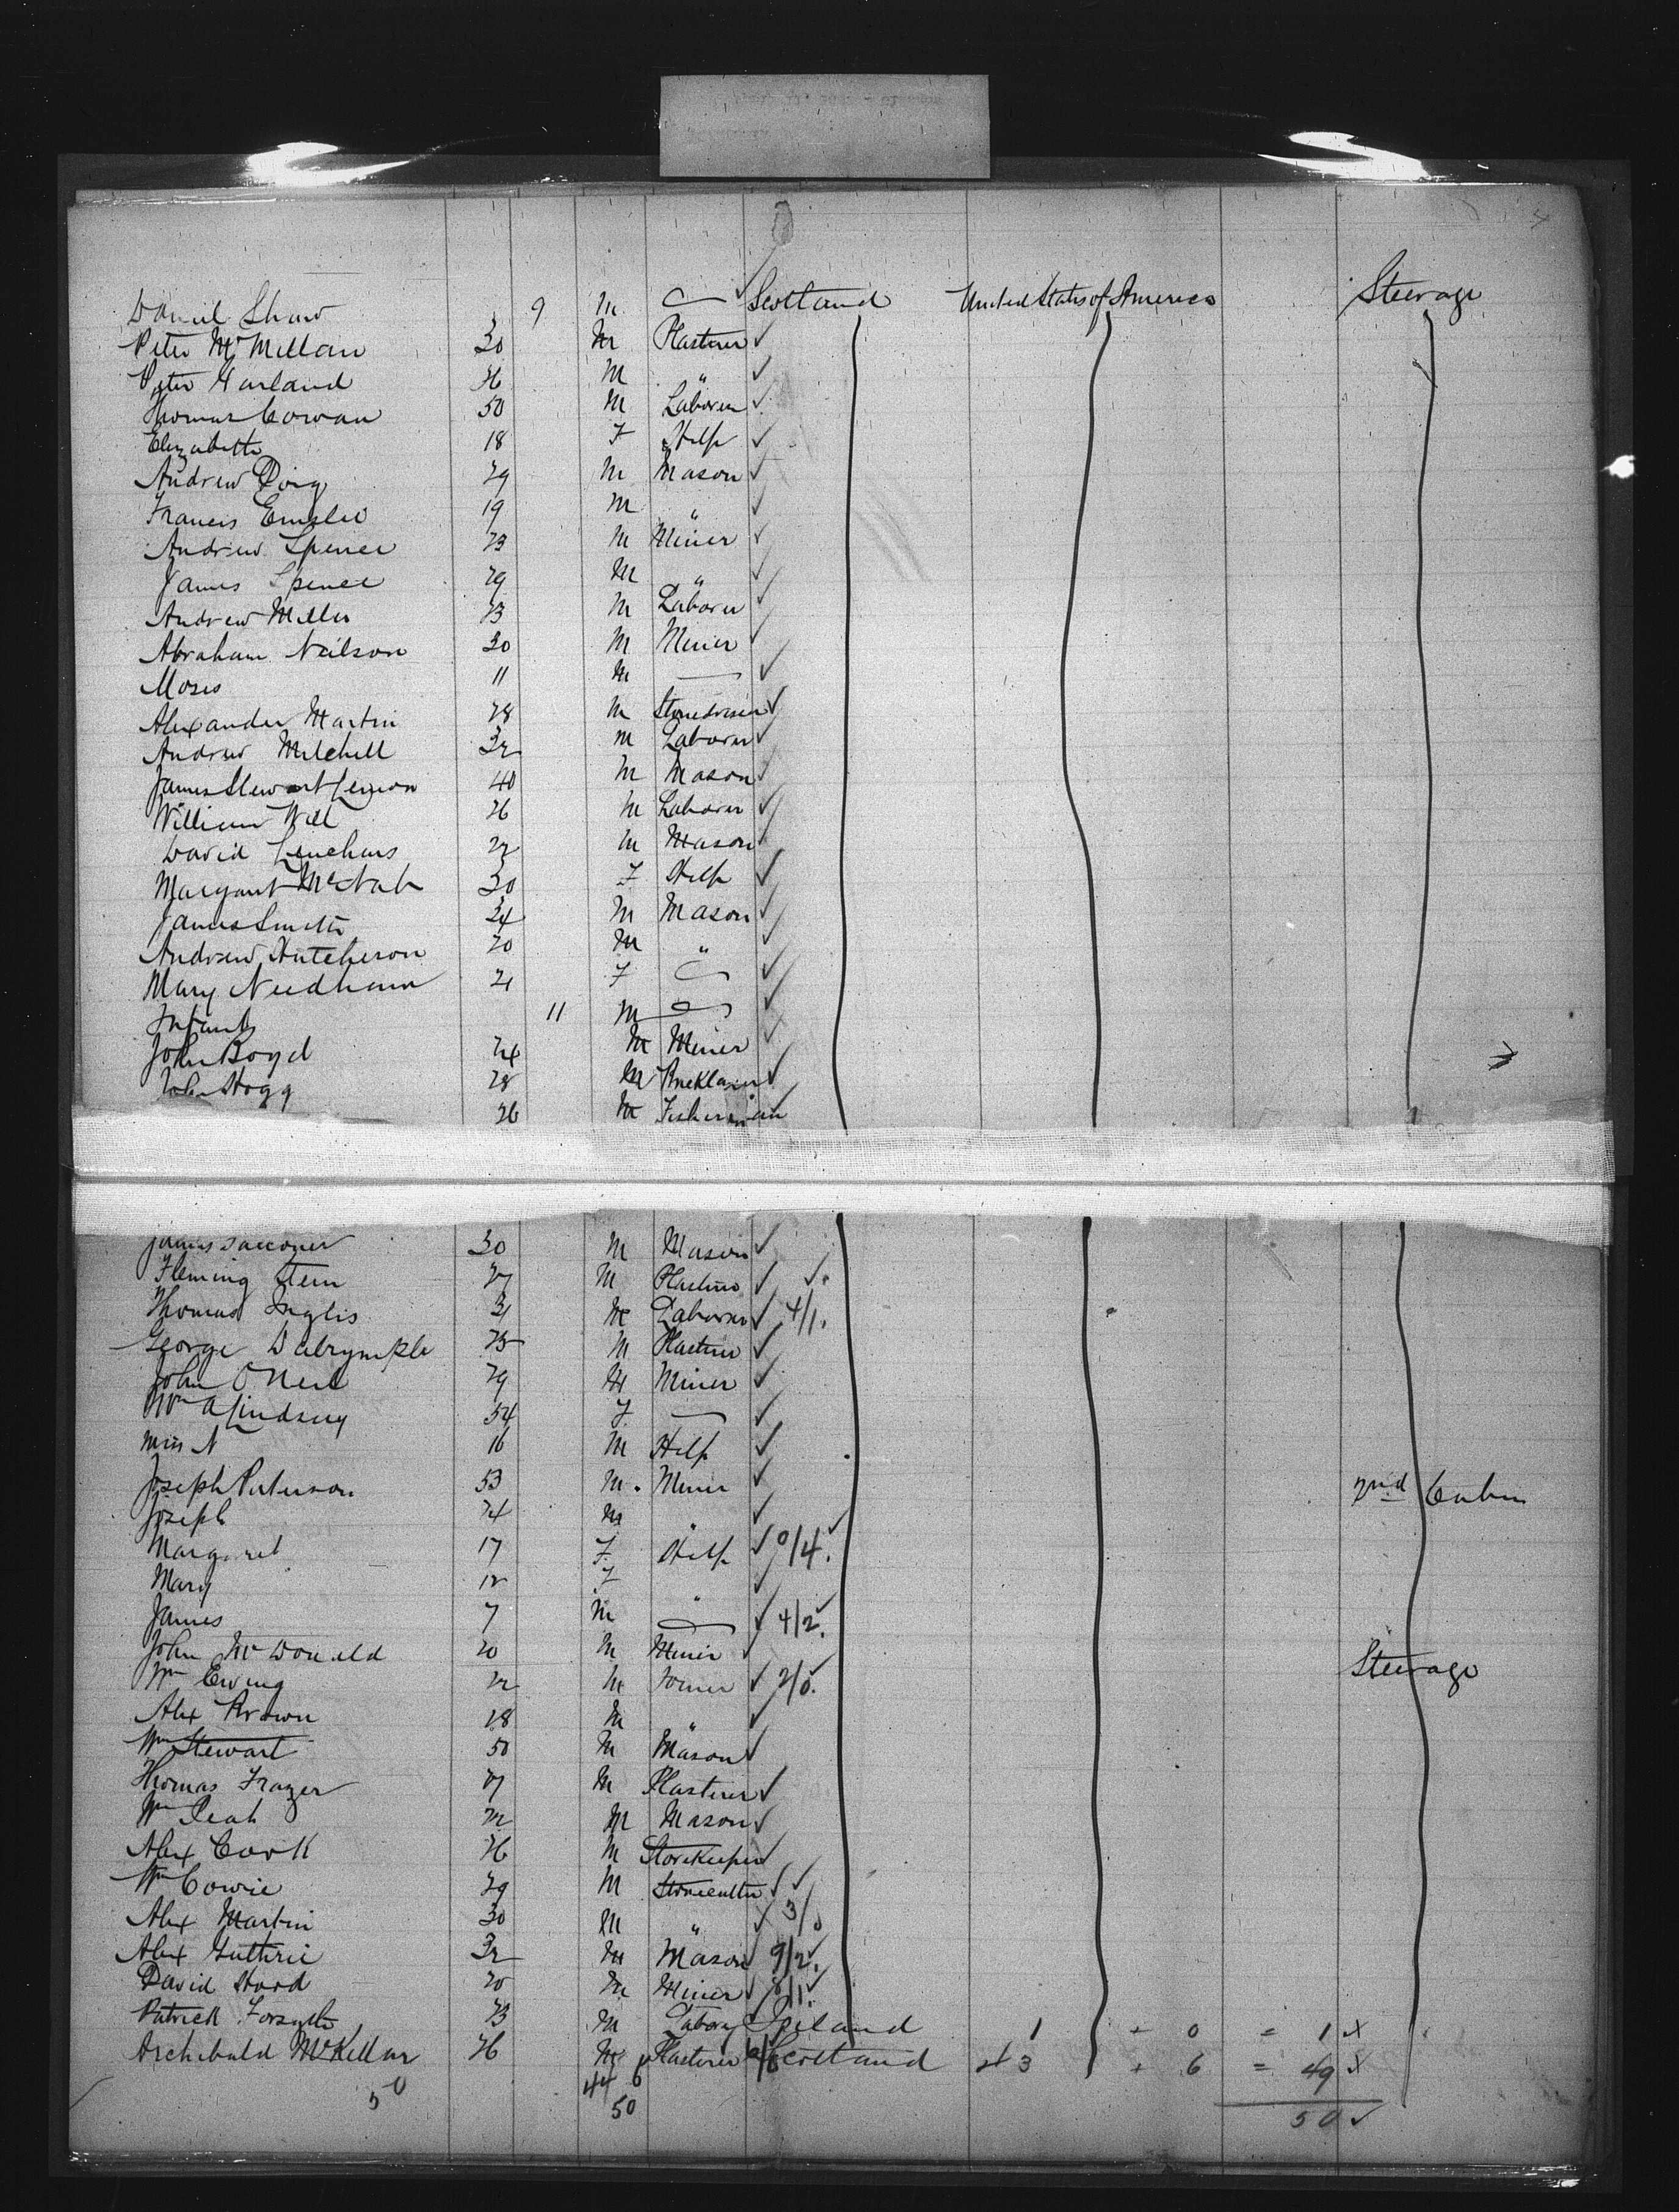 Daniel Shaw 9 M Scotland United States of America Steerage
Peter McMillan 30 M Plasterer
Peter Garland 26 M "
Thomas Cowan 50 M Laborer
Elizabeth 18 F Help
Andrew Doig 29 M Mason
Francis Emslie 19 M "
Andrew Spence 23 M Miner
James Spence 29 M "
Andrew Miller 23 M Laborer
Abraham Neilson 30 M Miner
Moses 11 M
Alexander Martin 28 M
Andrew Mitchell 32 M Laborer
James Stewart 40 M Mason
William Will 26 M Laborer
David 22 M Mason
Margaret McNab 30 F Help
James Smith 34 M Mason
Andrew Hutcheson 20 M "
Mary Needham 21 F
Infant 11 M
John Boyd 24 M Miner
John Hogg 28 M
26 M Fisherman
James Falconer 30 M Mason
Fleming 27 M Plasterer
Thomas Inglis 31 M Laborer 4/1.
George Dalrymple 25 M Plasterer
John O'Neil 29 M Miner
Wm A Lindsay 54 F
Miss N 16 M Help
Joseph Paterson 53 M. Miner 2nd Cabin
Joseph 24 M "
Margaret 17 F. Help 0/4.
Mary 12 F "
James 7 M 4/2.
John McDonald 20 M Miner Steerage
Wm Ewing 22 M Joiner 2/0.
Alex Brown 28 M "
Wm Stewart 50 M Mason
Thomas Frazer 27 M Plasterer
Wm 22 M Mason
Alex Cook 26 M Storekeeper
Wm Cowie 29 M Stonecutter
Alex Martin 30 M " 3/0
Alex Guthrie 32 M Mason 9/2.
David Hood 20 M Miner
Patrick Forsyth 23 M Laborer Ireland 1 + 0 = 1 x
Archibald McKellar 26 M Plasterer Scotland 43 + 6 = 49 x
50 44 6
50 50